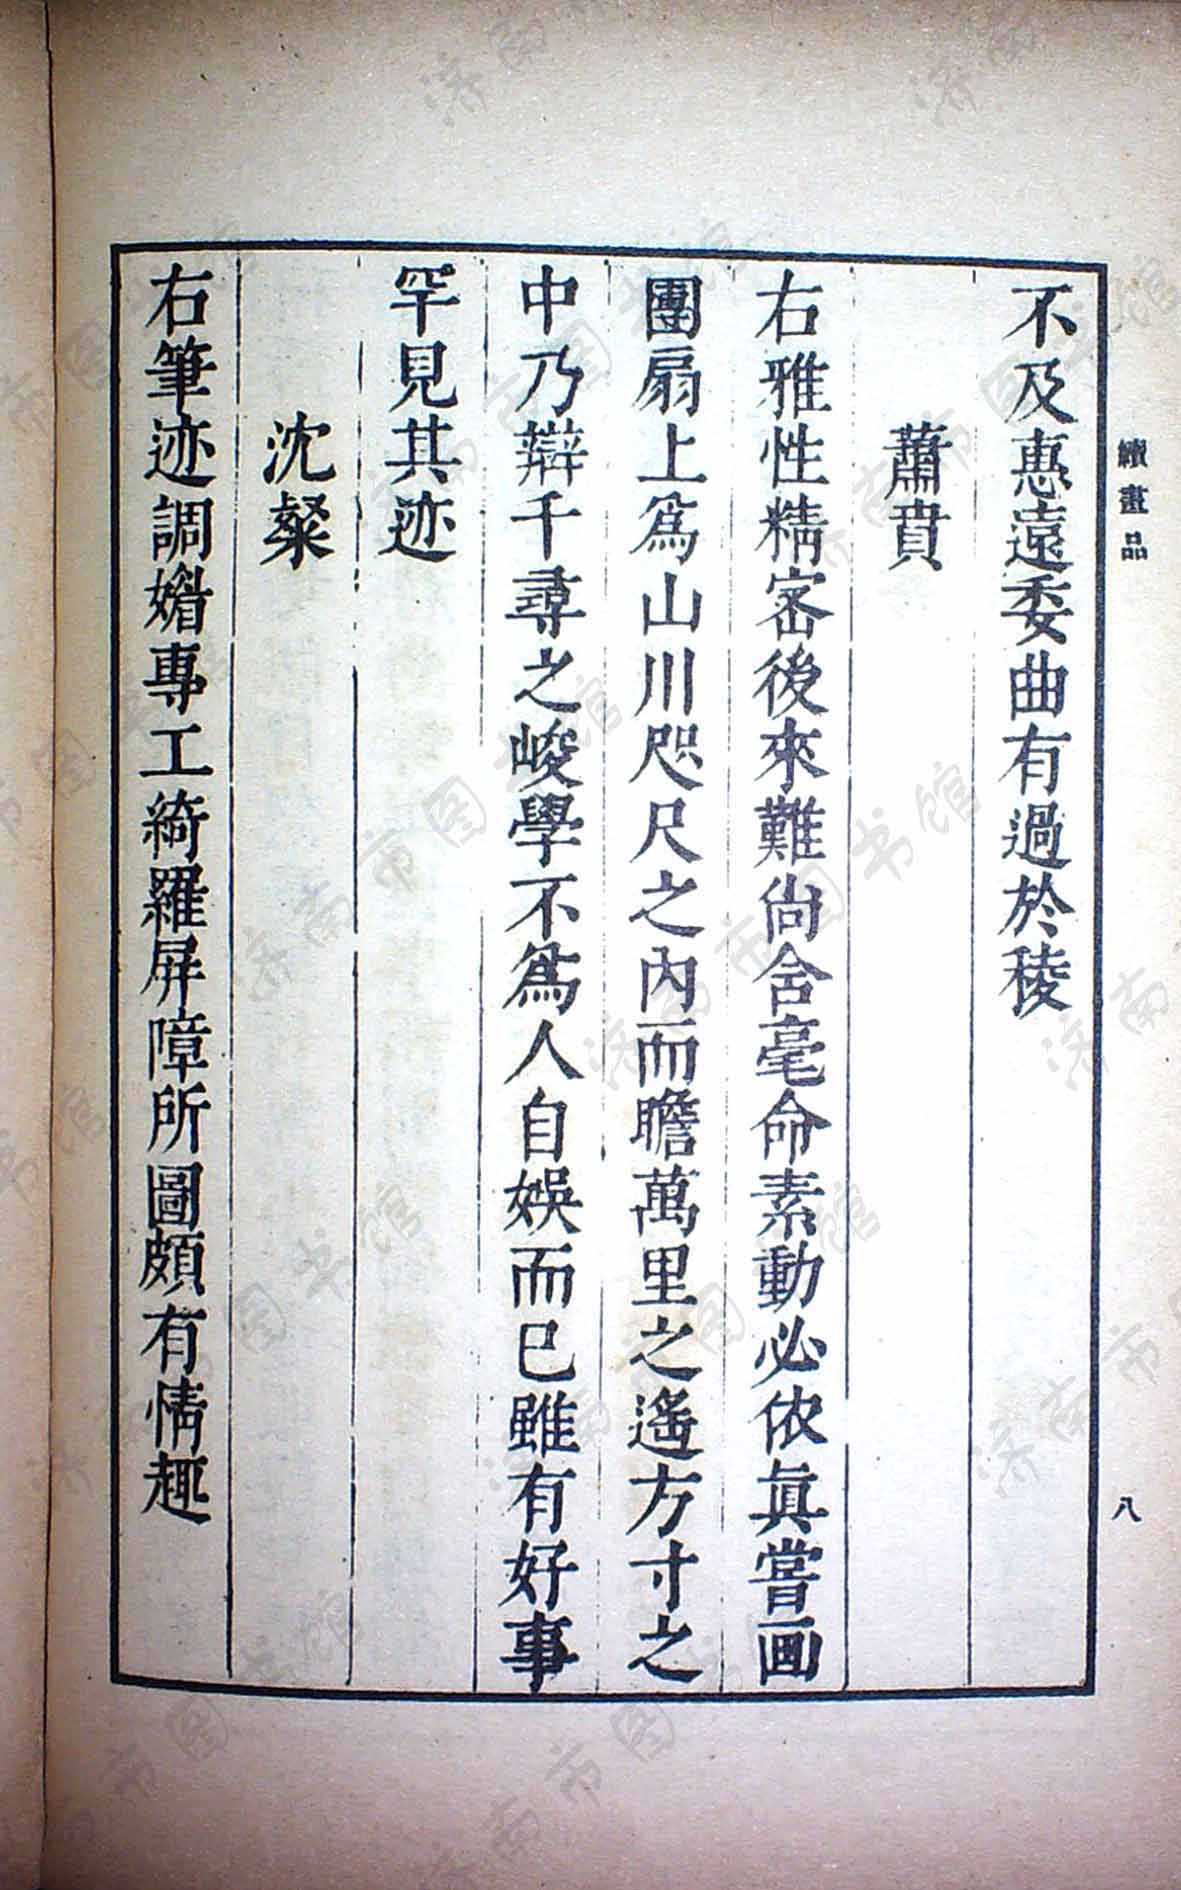 續畫品
八
不及惠遠委曲有過於稜
蕭賁
右雅性精密後來難尙含毫命素動必依眞嘗画
團扇上爲山川咫尺之內而瞻萬里之遙方寸之
中乃辯千尋之峻學不爲人自娛而已雖有好事
罕見其迹
沈粲
右筆迹調媚專工綺羅屏障所圖頗有情趣
济南市图书馆